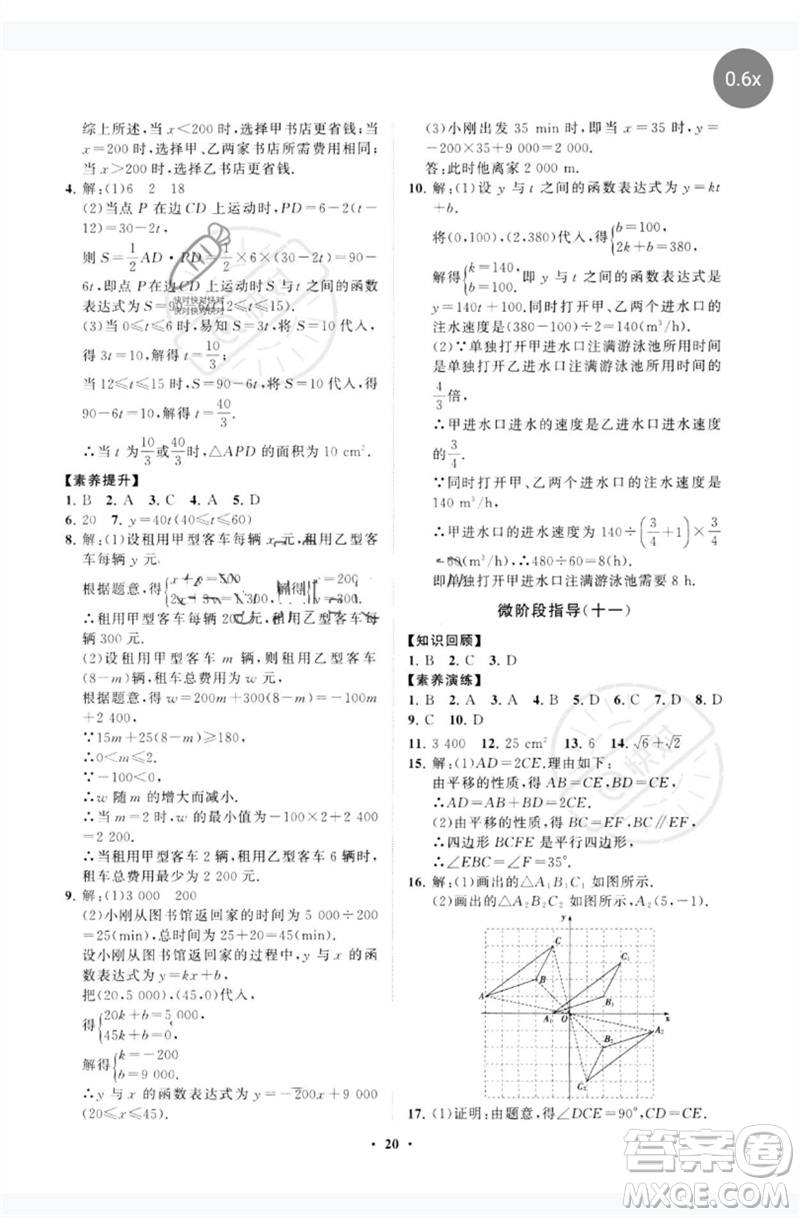 0.6x
综上所述,当 x<200 时,选择甲书店更省钱;当
x=200 时,选择甲、乙书店所需费用相同;当
x>200 时,选择乙书店更省钱.
4. 解:(1)6 2 18
(2)当点 P 在边 CD 上运动时,PD=6-2(t-
12)=30-2t,
则 S=1/2 AD·PD=1/2×6×(30-2t)=90-
6t,即点 P 在边 CD 上运动时S 与 t 之间的函数
表达式为 S=90-6t(12≤t≤15).
(3)当 0≤t≤6 时,易知 S=3t,将 S=10 代入,
得 3t=10,解得 t=10/3;
当 12≤t≤15 时,将 S=10 代入,得
90-6t=10,解得 t=40/3.
∴当 t 为10/3或40/3时,△APD 的面积为 10 cm².
【素养提升】
1. B 2. A 3. C 4. A 5. D
6. 20 7. y=40t(40≤t≤60)
8. 解:(1)设租用甲型客车每辆 x 元,租用乙型客
车每辆 y 元.
根据题意,得
=200
=300.
∴租用甲型客车每辆 200 元,租用乙型客车每
辆 300 元.
(2)设租用甲型客车 m 辆,则租用乙型客车
(8-m)辆,租车总费用为 w 元.
根据题意,得 w=200m+300(8-m)=-100m
+2 400,
∵15m+25(8-m)≥180,
∴0<m≤2.
∵-100<0,
∴w 随 m 的增大而减小.
∴当 m=2 时,w 的最小值为-100×2+2 400
=2 200.
∴当租用甲型客车 2 辆,租用乙型客车 6 辆时,
租车总费用最少,最少费用为 2 200 元.
9. 解:(1)3 000 200
(2)小刚从图书馆返回家的时间为 5 000÷200
=25(min),总时间为 20+25=45(min).
设小刚从图书馆返回家的过程中,y 与 x 的函
数表达式为 y=kx+b,
把(20,5 000),(45,0)代入,
得{20k+b=5 000,
45k+b=0,
解得{k=-200,
b=9 000.
∴y 与 x 的函数表达式为 y=-200x+9 000
(20≤x≤45).
(3)小刚出发 35 min 时,即当 x=35 时,y=
-200×35+9 000=2 000.
答:此时他离家 2 000 m.
10. 解:(1)设 y 与 t 之间的函数表达式为 y=kt
+b.
将(0,100),(2,380)代入,得{b=100,
2k+b=380,
解得{k=140,
b=100.
即 y 与 t 之间的函数表达式为
y=140t+100.同时打开甲、乙两个进水口的
注水速度是(380-100)÷2=140(m³/h).
(2)∵单独打开甲进水口注满游泳池的用时是
单独打开乙进水口注满游泳池所用时间的
4/3倍,
∴甲进水口进水的速度是乙进水口进水速度
的3/4.
∵同时打开甲、乙两个进水口的注水速度是
140 m³/h,
∴甲进水口的进水速度为 140÷(3/4+1)×3/4
=60(m³/h).∴480÷60=8(h).
即单独打开甲进水口注满游泳池需要 8 h.
微阶段指导(十一)
【知识回顾】
1. B 2. C 3. D
【素养演练】
1. B 2. A 3. B 4. D 5. D 6. C 7. D 8. D
9. C 10. D
11. 3 400 12. 25 cm² 13. 6 14. √6+√2
15. 解:(1)AD=2CE.理由如下:
由平移的性质,得 AB=CE,AB=DE,
∴AD=AB+DE=2CE.
(2)由平移的性质,得 BC=EF,BC∥EF,
∴四边形 BCFE 是平行四边形,
∴∠EBC=∠F=35°.
16. 解:(1)画出的△A₁B₁C₁如图所示.
(2)画出的△A₂B₂C₂如图所示,A₂(5,-1).
y
C
C₁
B
A
B₁
A₁
O
x
A₂
B₂
C₂
17. (1)证明:由题意,得∠DCE=90°,CD=CE.
• 20 •
快对快对快对
快对快对快对
快对
答案圈
MXQE.COM